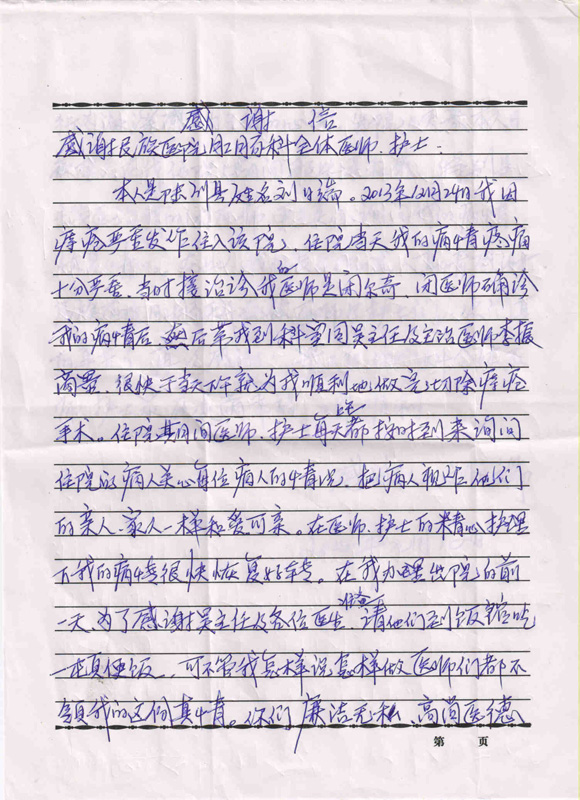 感谢信
感谢民族医院肛肠科全体医师、护士.
本人是陈列县及姓名刘。2013年12月24日我因
痔疮严重发作住入该院,住院当天我的病情疼痛
十分严重、当时接治诊我的医师是闭尔奇、闭医师确诊
我的病情后 然后带我到科室同吴主任及主治医师李振
商量、很快于当天下午就为我顺利地做完切除痔疮
手术。住院其间医师、护士每天都按时到来询问
住院的病人关心每位病人的情况、把病人视作他们
的亲人、家人一样和爱可亲。在医师、护士的精心护理
下我的病情很快恢复好转。在我办理出院的前
一天为了感谢吴主任及各位医生、准备请他们到饭馆吃
一顿便饭、可不管我怎样说怎样做医师们都不
领我的这份真情。你们廉洁无私、高尚医德
第 页